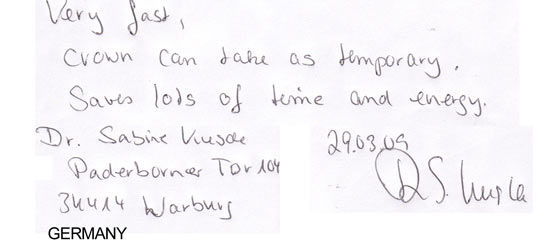 Very fast,
Crown can take as temporary.
Saves lots of time and energy.
Dr. Sabine Kusche
29.03.09
Paderborner Tor 104
34414 Warburg
GERMANY